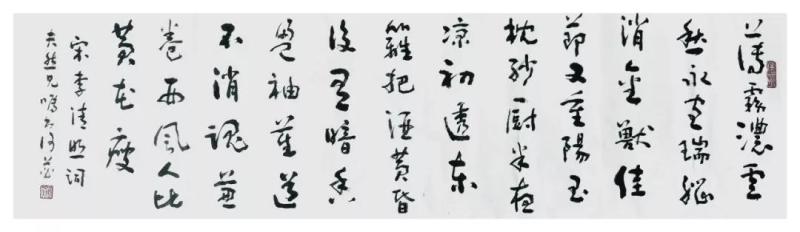 薄霧濃雲
愁永晝瑞腦
消金獸佳
節又重陽玉
枕紗厨半夜
凉初透東
籬把酒黄昏
後有暗香
盈袖莫道
不消魂簾
卷西風人比
黄花瘦
宋李清照詞
兄嘱书